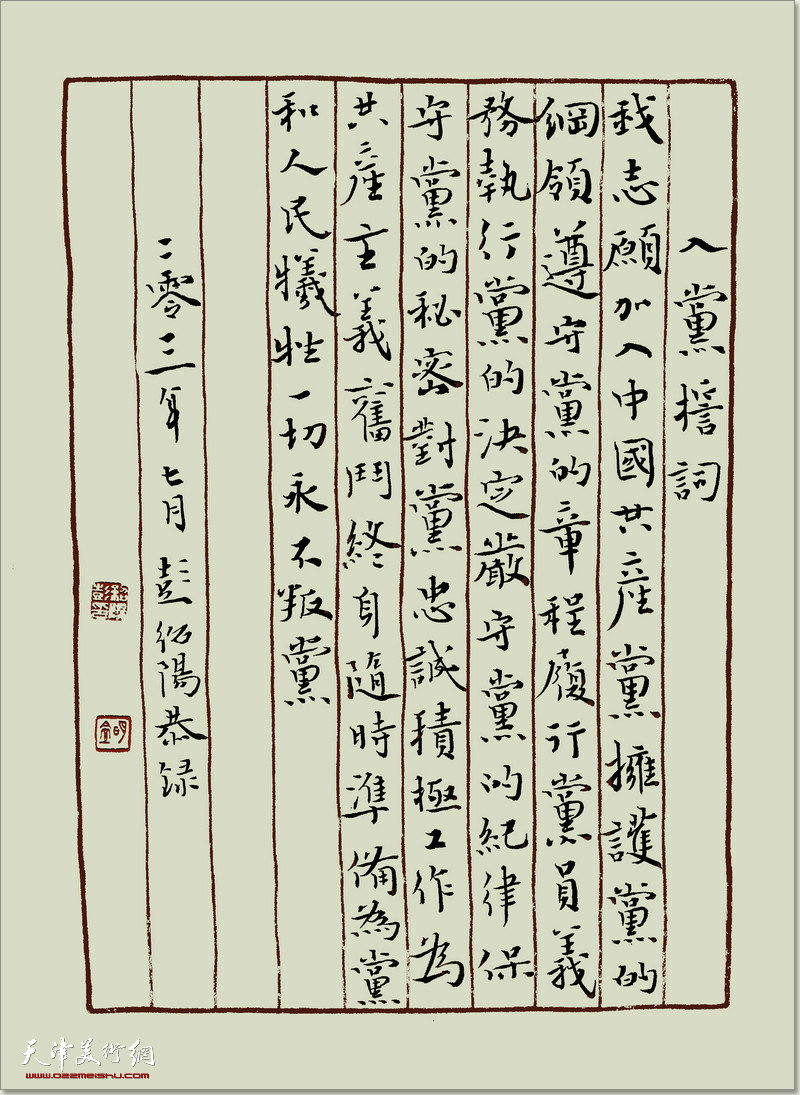 入黨誓詞
我志願加入中國共産黨擁護黨的
綱領遵守黨的章程履行黨員義
務執行黨的決定嚴守黨的紀律保
守黨的秘密對黨忠誠積極工作為
共産主義奮鬥終身隨時準備為黨
和人民犧牲一切永不叛黨
二零三年七月彭陽恭録
天津美術網
www.022meishu.com